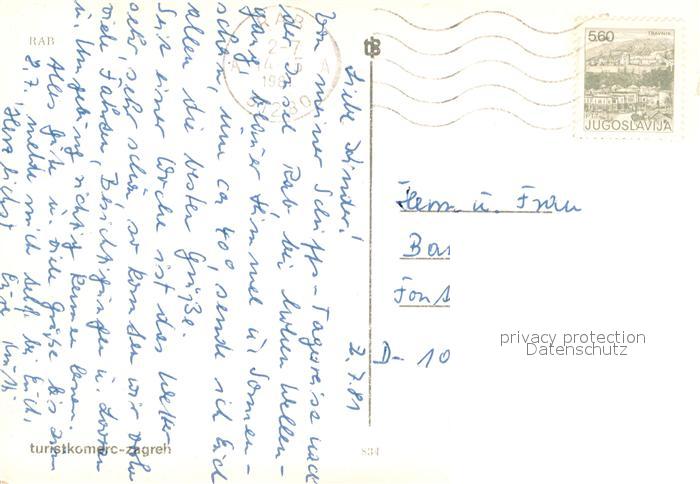 RAB
Liebe Münster!
2.7.81
Von meiner Schiffs-Tagesreise nach
der Insel Rab bei hohen Wellen-
gang, blauer Himmel u. Sonnen-
schein, nun ca 40°, sende ich Euch
allen die besten Grüße.
Seit einer Woche ist das Wetter
sehr, sehr schön so konnten wir viele
viele Fahrten, Besichtigungen u. Lovran
u. Umgebung richtig kennen lernen.
Alles Gute u. viele Grüße bis zum
2.7. melde mich selbst bei Euch,
Herzlichst Eure
RAB
2-7
1981
51280
tB
5.60
TRAVNIK
JUGOSLAVIJA
Herrn u. Frau
Bas
Fons
D- 10
privacy protection
Datenschutz
turistkomerc-zagreb
834